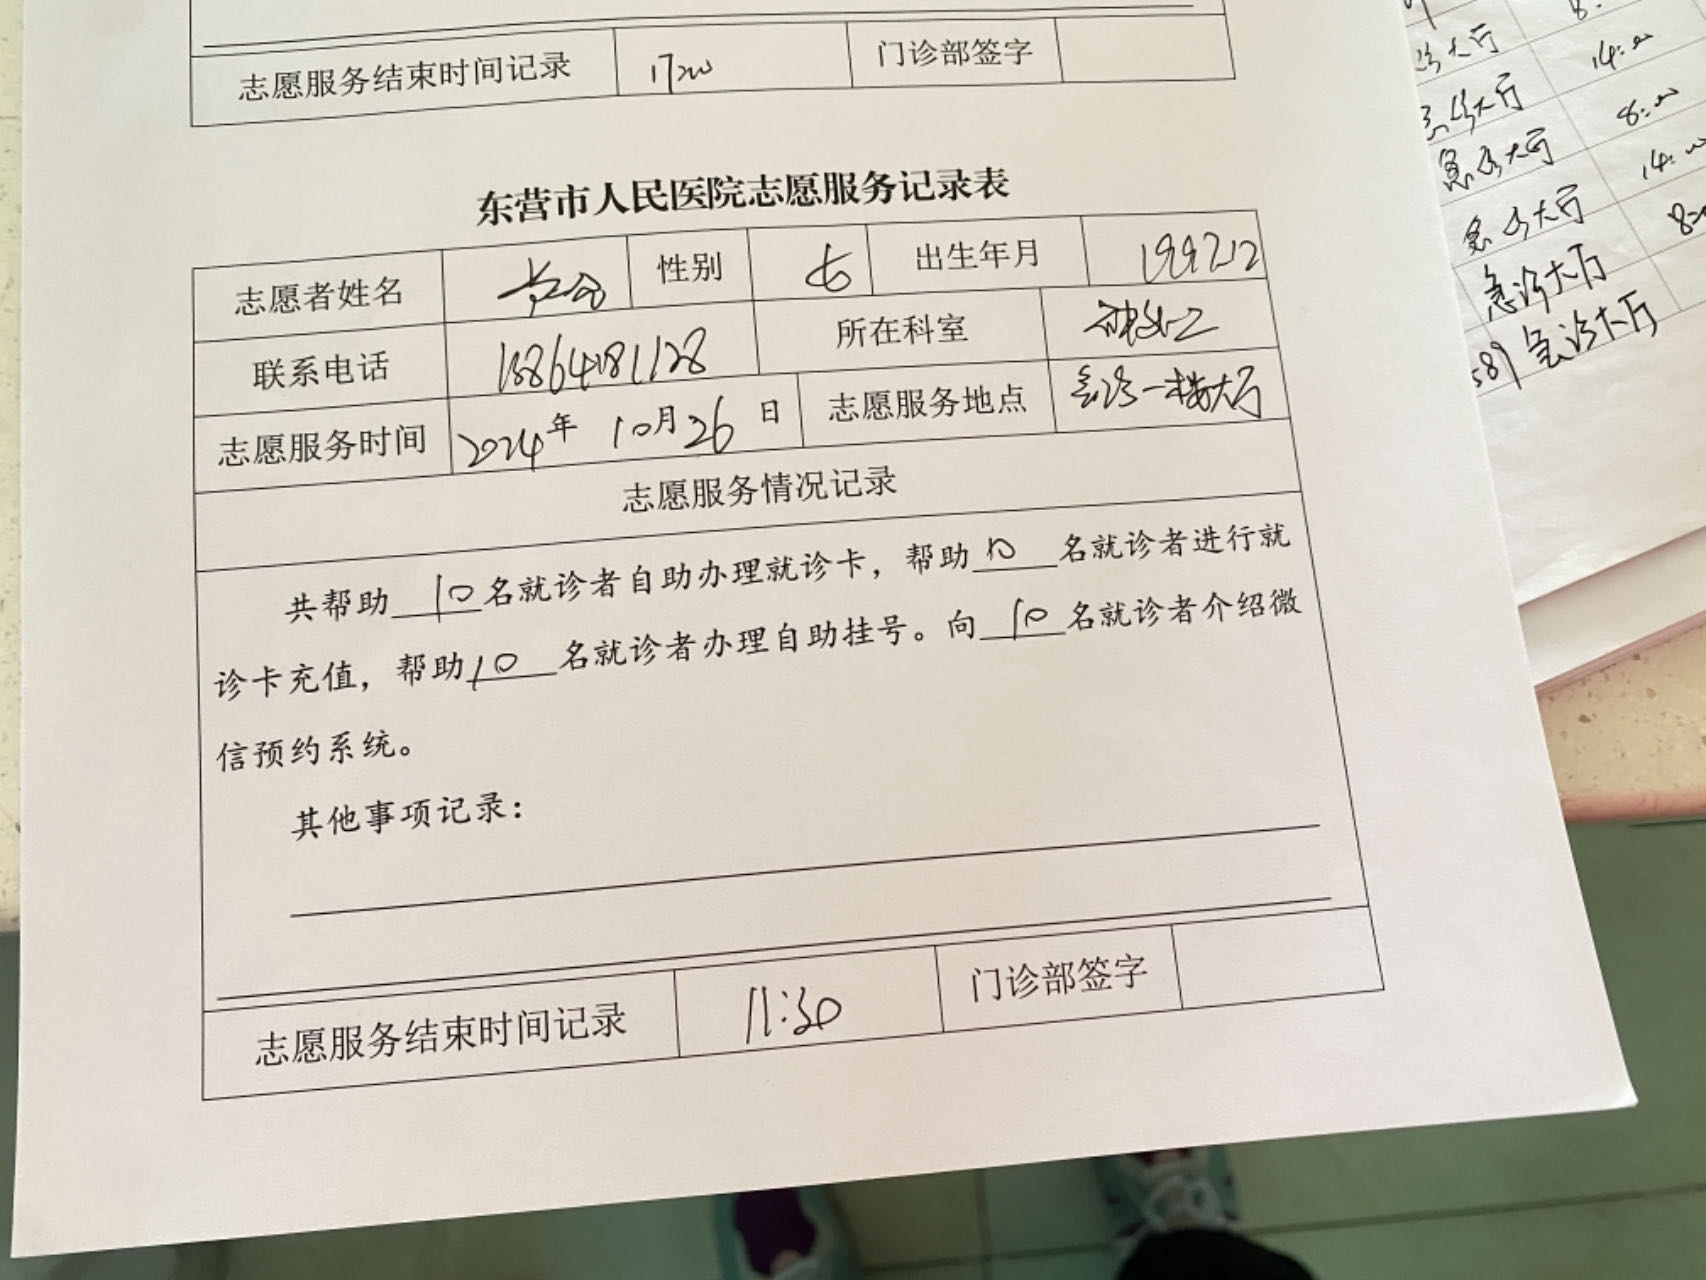 志愿服务结束时间记录 17:00 门诊部签字
东营市人民医院志愿服务记录表
志愿者姓名 性别 女 出生年月 1997.12
联系电话 18864181128 所在科室
志愿服务时间 2024年 10月26日 志愿服务地点 急诊一楼大厅
志愿服务情况记录
共帮助 10 名就诊者自助办理就诊卡，帮助 10 名就诊者进行就
诊卡充值，帮助 10 名就诊者办理自助挂号。向 10 名就诊者介绍微
信预约系统。
其他事项记录：
志愿服务结束时间记录 11:30 门诊部签字
诊大厅 8:
急诊大厅 14:00
急诊大厅 8:00
急诊大厅 14:00
急诊大厅
589 急诊大厅